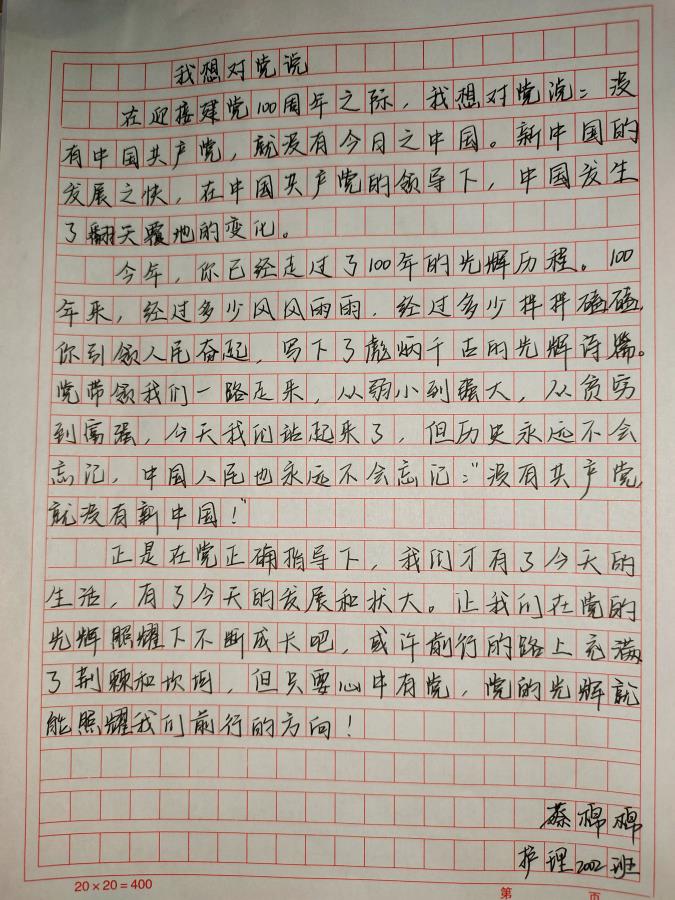 我想对党说
在迎接建党100周年之际，我想对党说：没
有中国共产党，就没有今日之中国。新中国的
发展之快，在中国共产党的领导下，中国发生
了翻天覆地的变化。
今年，你已经走过了100年的光辉历程。100
年来，经过多少风风雨雨，经过多少拌拌磕磕，
你引领人民奋起，写下了彪炳千古的光辉诗篇。
党带领我们一路走来，从弱小到强大，从贫穷
到富强，今天我们站起来了，但历史永远不会
忘记，中国人民也永远不会忘记：“没有共产党，
就没有新中国！”
正是在党正确指导下，我们才有了今天的
生活，有了今天的发展和状大。让我们在党的
光辉照耀下不断成长吧，或许前行的路上充满
了荆棘和坎坷，但只要心中有党，党的光辉就
能照耀我们前行的方向！
蔡棉棉
护理2002班
20×20=400
第 页